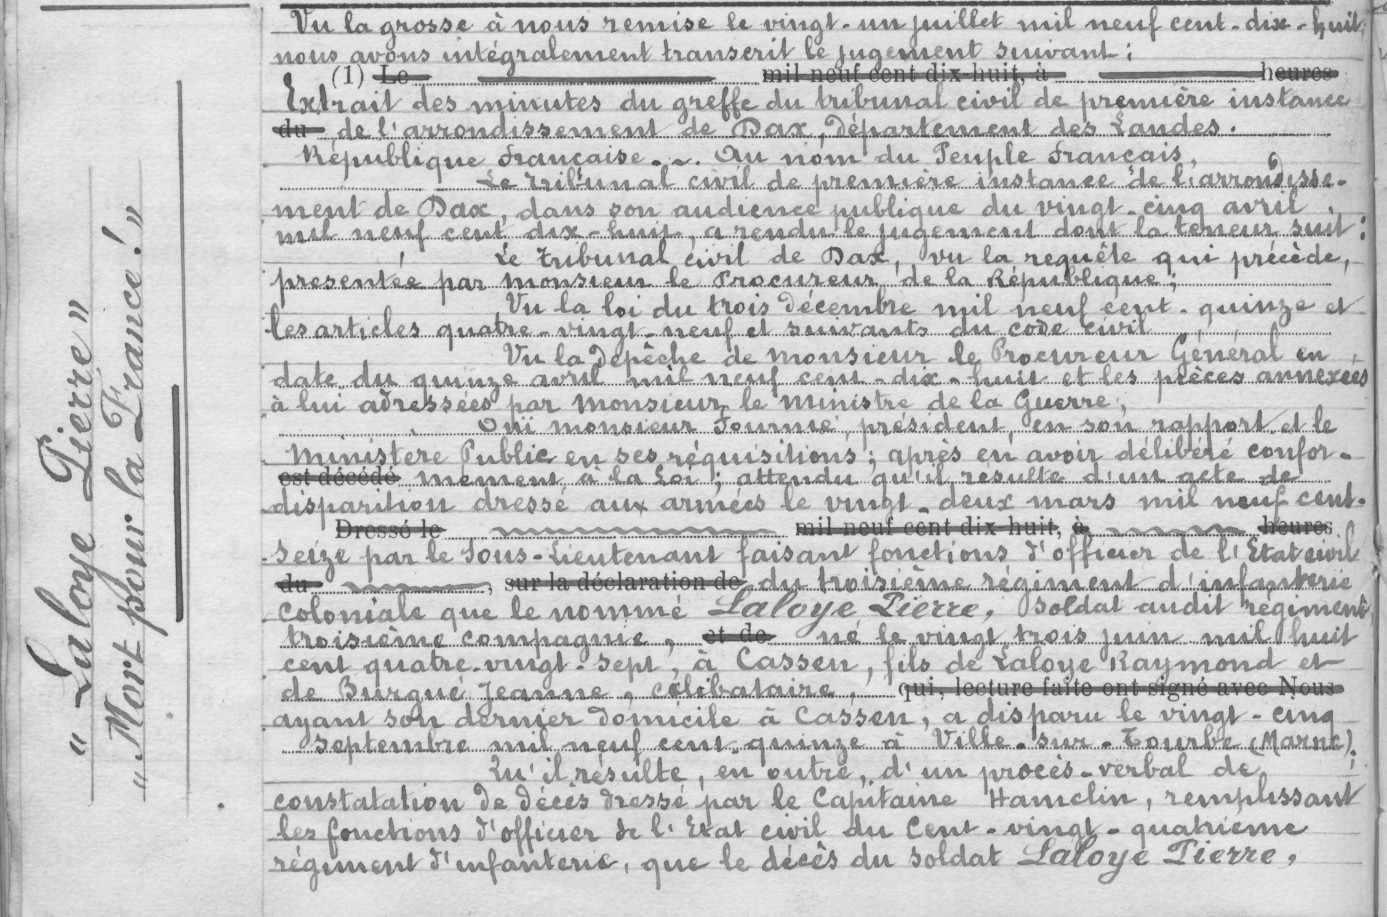 "Laloye Pierre"
"Mort pour la France!"
Vu la grosse à nous remise le vingt-un juillet mil neuf cent-dix-huit,
nous avons intégralement transcrit le jugement suivant:
(1) Le mil neuf cent dix huit, à heures
Extrait des minutes du greffe du tribunal civil de première instance
du de l'arrondissement de Dax, département des Landes.
République française. ~. Au nom du Peuple français,
Le tribunal civil de première instance de l'arrondisse-
ment de Dax, dans son audience publique du vingt-cinq avril
mil neuf cent dix-huit, a rendu le jugement dont la teneur suit:
Le tribunal civil de Dax, vu la requête qui précède,
presentée par monsieur le Procureur de la République;
Vu la loi du trois décembre mil neuf cent-quinze et
les articles quatre-vingt-neuf et suivants du code civil
Vu la dépêche de monsieur le Procureur Général en
date du quinze avril mil neuf cent-dix-huit et les pièces annexées
à lui adressées par monsieur le ministre de la Guerre,
Ouï monsieur Journé, président, en son rapport et le
ministère Public en ses réquisitions; après en avoir délibéré confor-
est décédé mément à la Loi; attendu qu'il résulte d'un acte de
disparition dressé aux armées le vingt-deux mars mil neuf cent-
Dressé le mil neuf cent dix huit, à heures
seize par le sous-Lieutenant faisant fonctions d'officier de l'Etat civil
du , sur la déclaration de du troisième régiment d'infanterie
coloniale que le nommé Laloye Pierre, soldat audit régiment,
troisième compagnie, et de né le vingt trois juin mil huit
cent quatre-vingt-sept, à Cassen, fils de Laloye Raymond et
de Burgué Jeanne, célibataire, qui, lecture faite ont signé avec Nous
ayant son dernier domicile à Cassen, a disparu le vingt-cinq
septembre mil neuf cent-quinze à Ville-sur-Tourbe (Marne);
Qu'il résulte, en outre, d'un procès-verbal de
constatation de décès dressé par le Capitaine Hamelin, remplissant
les fonctions d'officier de l'Etat civil du Cent-vingt-quatrième
régiment d'infanterie, que le décès du soldat Laloye Pierre,